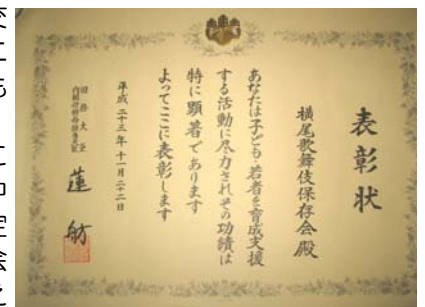 表彰状
横尾歌舞伎保存会殿
あなたは子ども・若者を育成支援
する活動に尽力されその功績は
特に顕著であります
よってここに表彰します
平成二十三年十一月二十二日
国務大臣
内閣府特命担当大臣
蓮舫